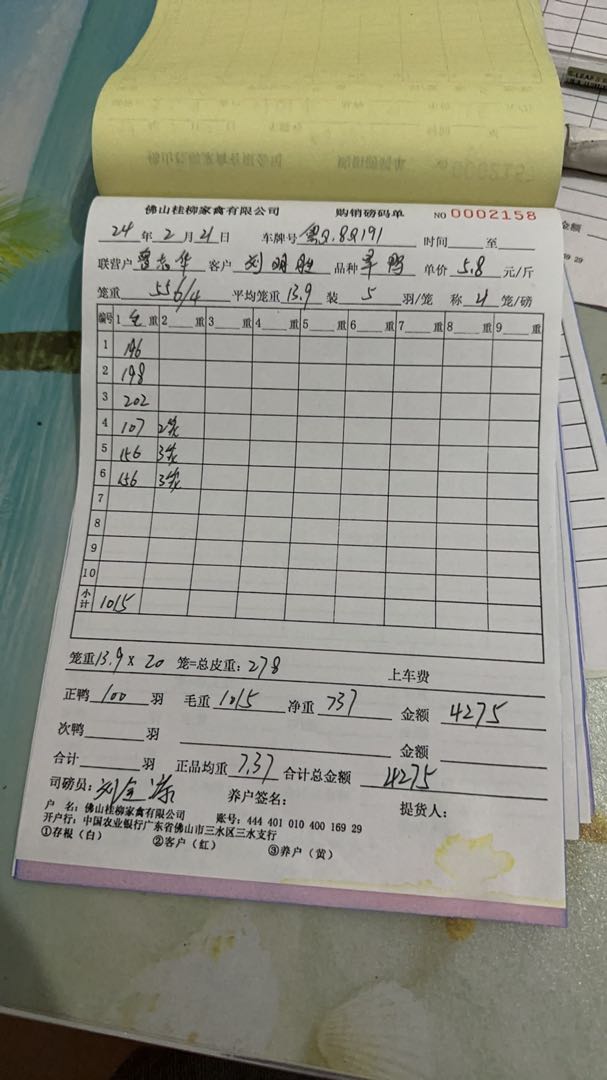 佛山桂柳家禽有限公司 购销磅码单 NO 0002158
24 年 2 月 21 日 车牌号 粤Q.8Q191 时间 至
联营户 曾志华 客户 刘明胜 品种 旱鸭 单价 5.8 元/斤
笼重 556/4 平均笼重 13.9 装 5 羽/笼 称 4 笼/磅
编号 1 毛 重 2 重 3 重 4 重 5 重 6 重 7 重 8 重 9 重
1 196
2 198
3 202
4 107 2笼
5 156 3笼
6 156 3笼
7
8
9
10
小计 1015
笼重 13.9 × 20 笼=总皮重: 278 上车费
正鸭 100 羽 毛重 1015 净重 737 金额 4275
次鸭 羽 金额
合计 羽 正品均重 7.37 合计总金额 4275
司磅员: 养户签名: 提货人:
户 名: 佛山桂柳家禽有限公司 账号: 444 401 010 400 169 29
开户行: 中国农业银行广东省佛山市三水区三水支行
①存根（白） ②客户（红） ③养户（黄）